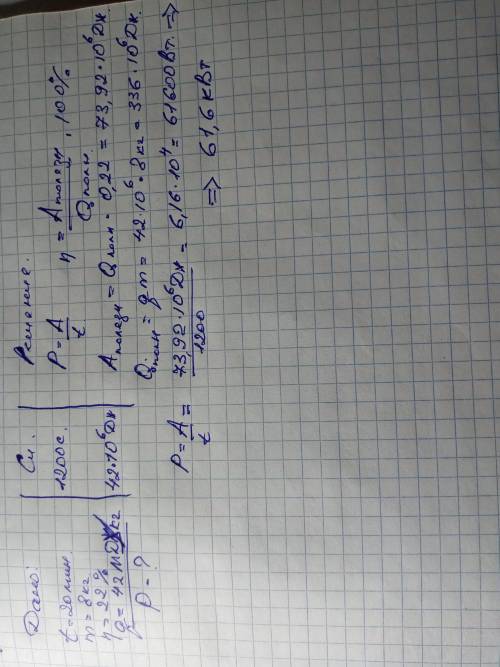 Дано:
t = 20 мин.
m = 8 кг
η = 22%
q = 42 МДж/кг
P - ?
Си.
1200 с.
42·10⁶ Дж
Решение.
P = A/t η = Aполезн/Qполн. · 100%
Aполезн = Qполн · 0,22 = 73,92·10⁶ Дж.
Qполн = qm = 42·10⁶ · 8 кг = 336·10⁶ Дж.
P = A/t = 73,92·10⁶ Дж/1200 = 6,16·10⁴ = 61600 Вт. =>
=> 61,6 кВт